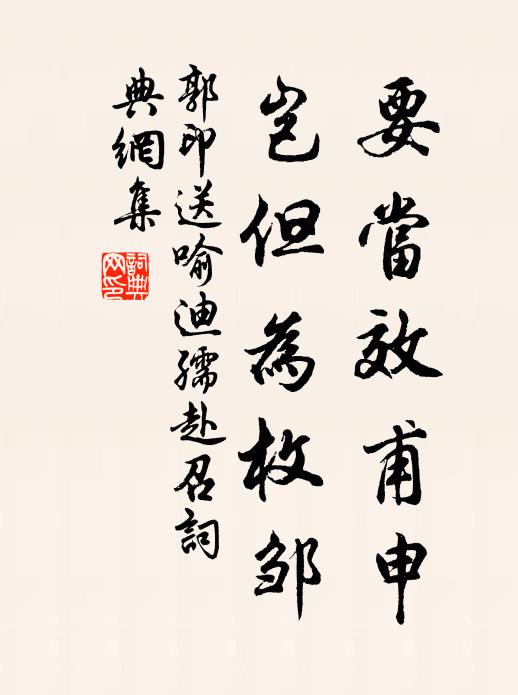 要當效甫申
豈但為枚邹
郭印送喻迪孺赴召詞
典網集
詞典网印